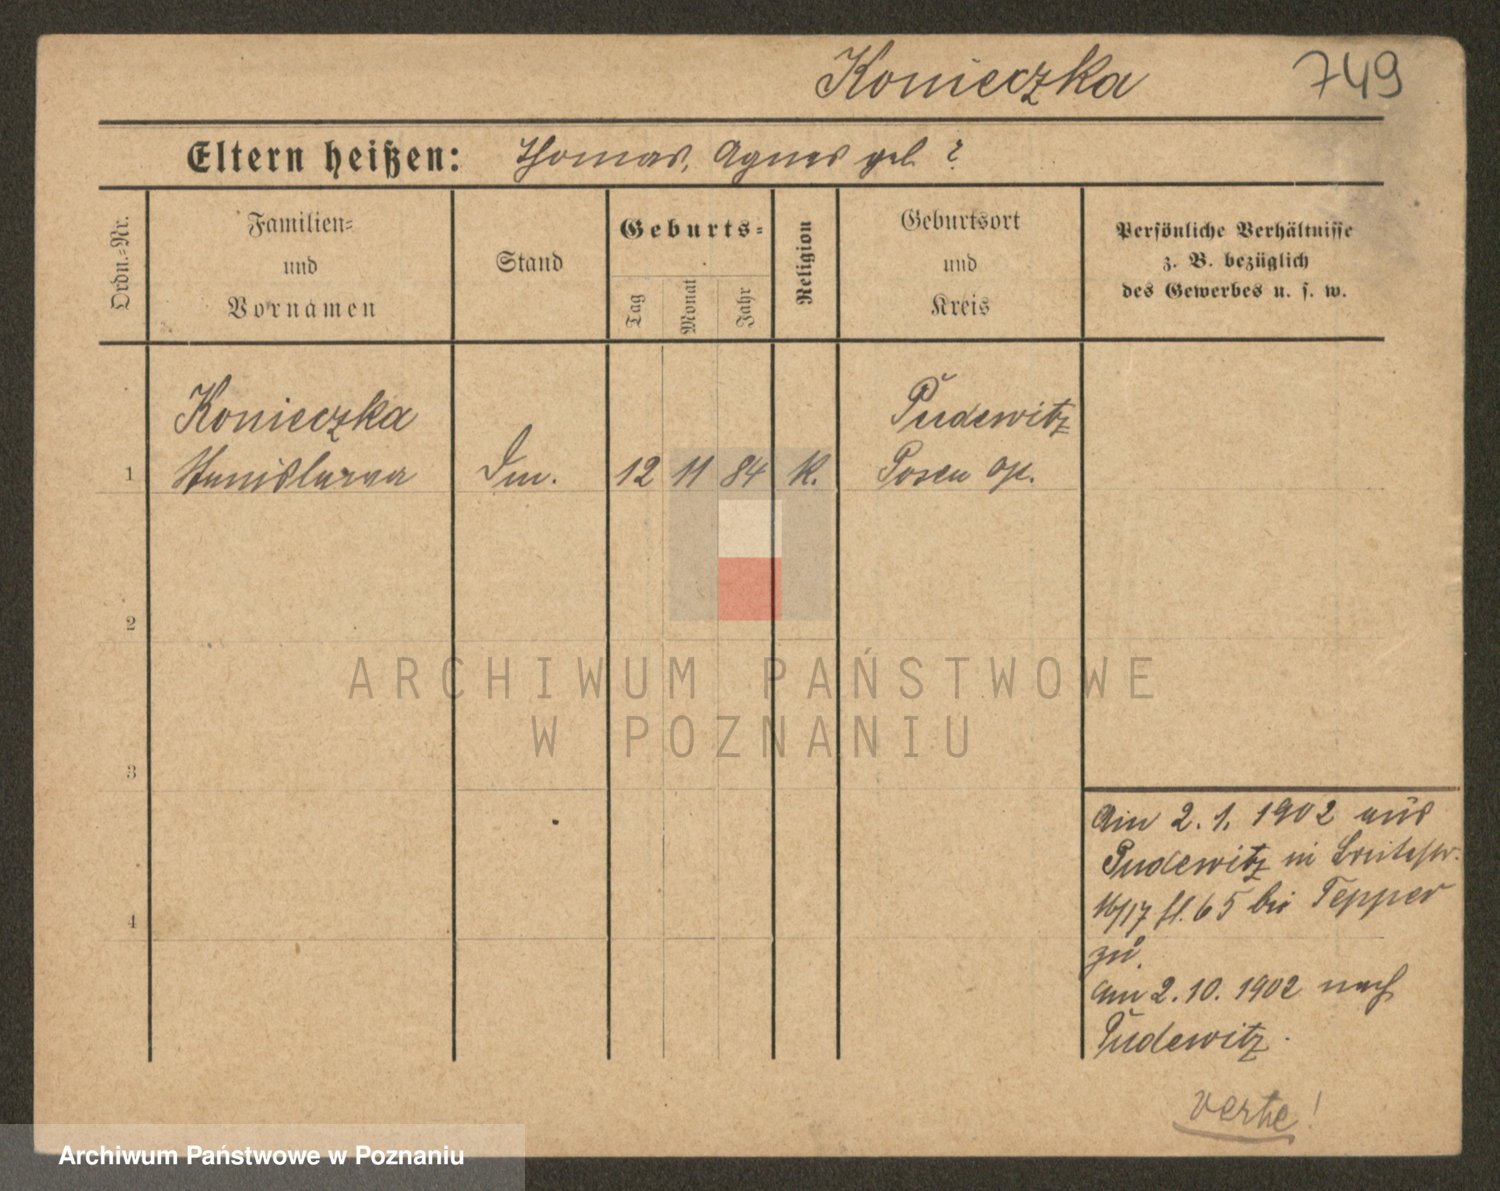 Konieczka 749
Eltern heißen: Thomas, Agnes geb. ?
Ordn.=Nr.
Familien=
und
Vornamen
Stand
Geburts=
Tag
Monat
Jahr
Religion
Geburtsort
und
Kreis
Persönliche Verhältnisse
z. B. bezüglich
des Gewerbes u. s. w.
Konieczka Pudewitz
1 Stanislawa 12 11 84 K. Posen
2
ARCHIWUM PAŃSTWOWE
W POZNANIU
3
Am 2. 1. 1902 aus
Pudewitz in Breitestr.
16/17 bei Tepper
4
zu.
Am 2. 10. 1902 nach
Pudewitz.
verte!
Archiwum Państwowe w Poznaniu